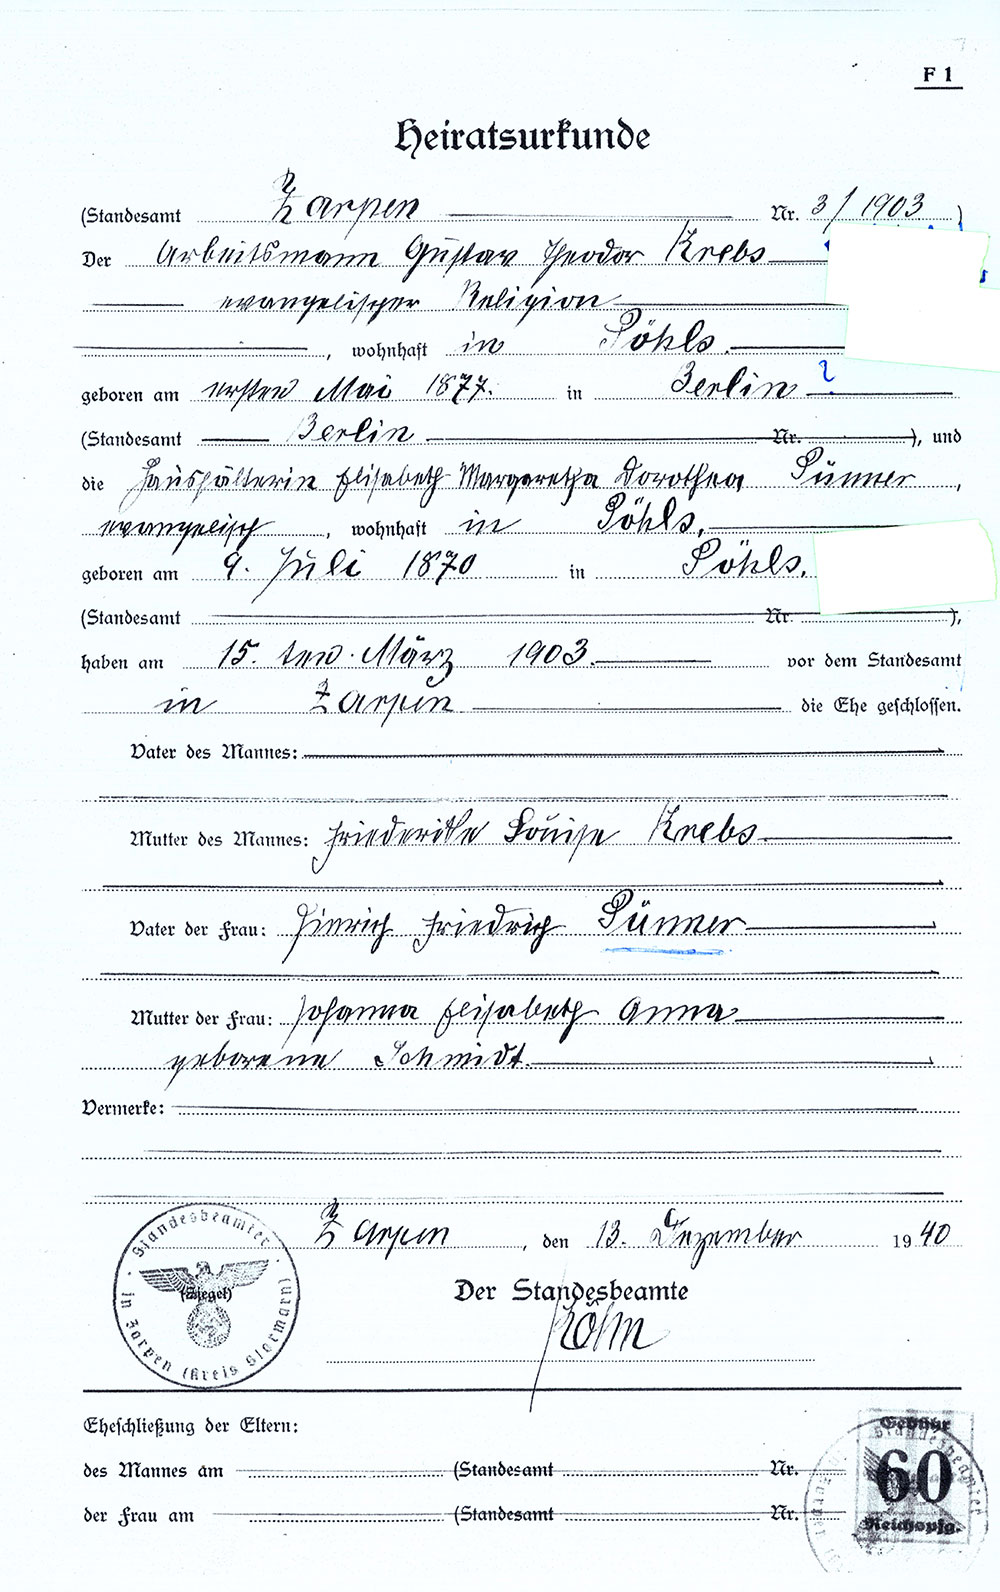 F 1
Heiratsurkunde
(Standesamt Zarpen Nr. 3/1903)
Der Arbeitsmann Gustav Theodor Krebs
evangelischer Religion
, wohnhaft in Pöhls.
geboren am ersten Mai 1877. in Berlin ?
(Standesamt Berlin Nr. ), und
die Haushälterin Elisabeth Margaretha Dorothea Pünner ,
evangelisch , wohnhaft in Pöhls,
geboren am 9. Juli 1870 in Pöhls.
(Standesamt Nr. ),
haben am 15. ten März 1903. vor dem Standesamt
in Zarpen die Ehe geschlossen.
Vater des Mannes:
Mutter des Mannes: Friederike Louise Krebs
Vater der Frau: Hinrich Friedrich Pünner
Mutter der Frau: Johanna Elisabeth Anna
geborene Schmidt.
Vermerke:
Zarpen , den 13. Dezember 1940
Der Standesbeamte
(Siegel)
Standesbeamter in Zarpen (Kreis Stormarn)
Eheschließung der Eltern:
des Mannes am (Standesamt Nr.
der Frau am (Standesamt Nr.
Gebühr
60
Reichspfg.
Standesbeamter